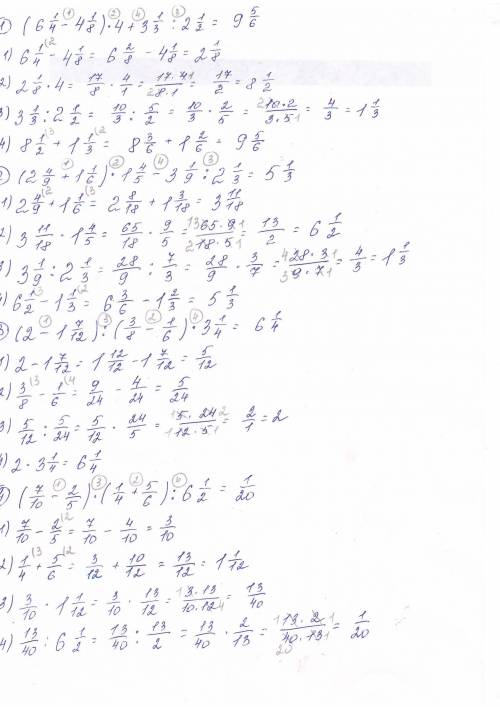 1) (6 1/4 - 4 1/8) · 4 + 3 1/3 : 2 1/2 = 9 5/6
1) 6 1/4 - 4 1/8 = 6 2/8 - 4 1/8 = 2 1/8
2) 2 1/8 · 4 = 17/8 · 4/1 = 17·4/8·1 = 17/2 = 8 1/2
3) 3 1/3 : 2 1/2 = 10/3 : 5/2 = 10/3 · 2/5 = 10·2/3·5 = 4/3 = 1 1/3
4) 8 1/2 + 1 1/3 = 8 3/6 + 1 2/6 = 9 5/6
2) (2 4/9 + 1 1/6) · 1 4/5 - 3 1/9 : 2 1/3 = 5 1/3
1) 2 4/9 + 1 1/6 = 2 8/18 + 1 3/18 = 3 11/18
2) 3 11/18 · 1 4/5 = 65/18 · 9/5 = 65·9/18·5 = 13/2 = 6 1/2
3) 3 1/9 : 2 1/3 = 28/9 : 7/3 = 28/9 · 3/7 = 28·3/9·7 = 4/3 = 1 1/3
4) 6 1/2 - 1 1/3 = 6 3/6 - 1 2/3 = 5 1/3
3) (2 - 1 7/12) : (3/8 - 1/6) · 3 1/4 = 6 1/4
1) 2 - 1 7/12 = 1 12/12 - 1 7/12 = 5/12
2) 3/8 - 1/6 = 9/24 - 4/24 = 5/24
3) 5/12 : 5/24 = 5/12 · 24/5 = 5·24/12·5 = 2/1 = 2
4) 2 · 3 1/4 = 6 1/4
4) (7/10 - 2/5) · (1/4 + 5/6) : 6 1/2 = 1/20
1) 7/10 - 2/5 = 7/10 - 4/10 = 3/10
2) 1/4 + 5/6 = 3/12 + 10/12 = 13/12 = 1 1/12
3) 3/10 · 1 1/12 = 3/10 · 13/12 = 3·13/10·12 = 13/40
4) 13/40 : 6 1/2 = 13/40 : 13/2 = 13/40 · 2/13 = 13·2/40·13 = 1/20